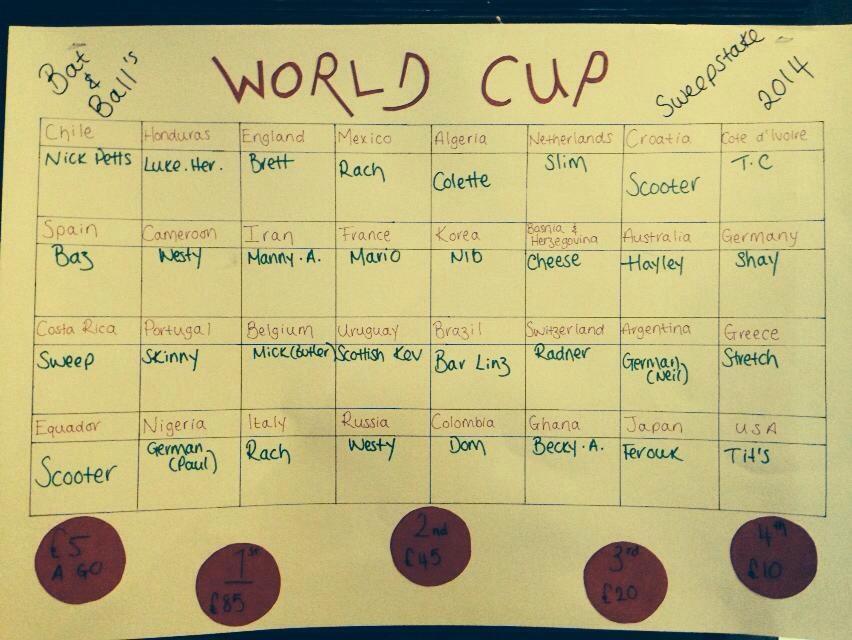 Bat
&
Ball's
WORLD CUP
Sweepstake
2014
Chile Honduras England Mexico Algeria Netherlands Croatia Cote d'Ivoire
Nick Petts Luke.Her. Brett Rach Colette Slim Scooter T.C
Spain Cameroon Iran France Korea Basnia & Herzegovina Australia Germany
Baz Westy Manny.A. Mario Nib Cheese Hayley Shay
Costa Rica Portugal Belgium Uruguay Brazil Switzerland Argentina Greece
Sweep Skinny Mick(Butler) Scottish Kev Bar Linz Radner German (Neil) Stretch
Equador Nigeria Italy Russia Colombia Ghana Japan USA
Scooter German (Paul) Rach Westy Dom Becky.A. Ferouk Tit's
£5
A GO
1st
£85
2nd
£45
3rd
£20
4th
£10